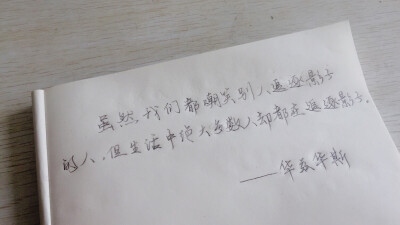 虽然,我们都嘲笑别人追逐影子
的人,但生活中绝大多数人却都在追逐影子.
——华兹华斯